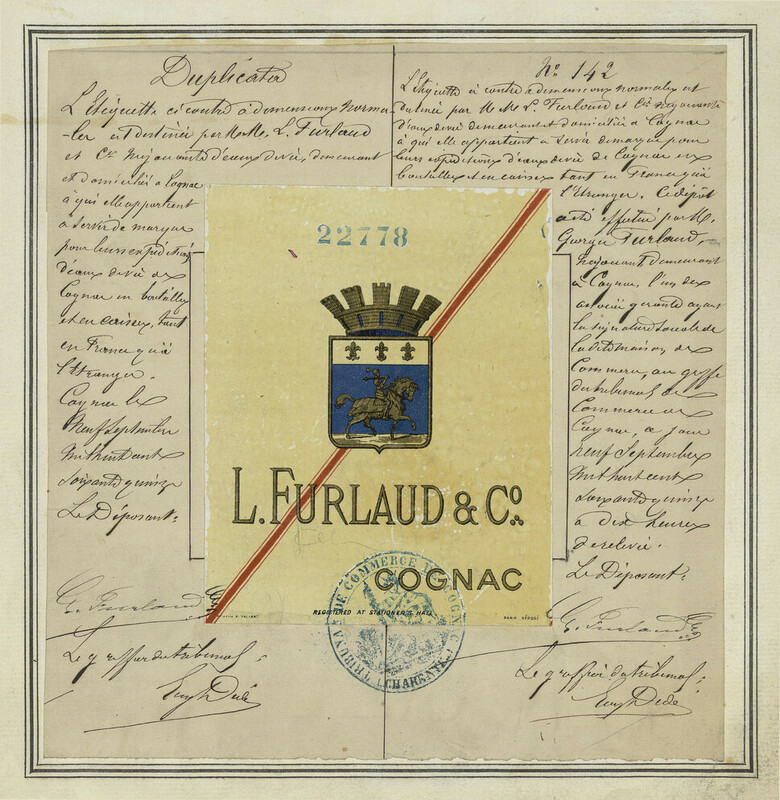 Duplicata
L'Etiquette ci contre à dimensions norma
-les est destinée par M.M. L. Furlaud
et Cie Négociants d'eaux de vie, demeurant
et domiciliés à Cognac
à qui elle appartient
à servir de marque
pour leurs expéditions
d'eaux de vie de
Cognac en bouteilles
et en caisses, tant
en France qu'à
l'étranger.
Cognac le
Neuf Septembre
mil huit cent
soixante quinze
Le Déposant:
G. Furlaud
Le greffier du tribunal:
No 142
L'Etiquette ci contre à dimensions normales est
destinée par M.M. L. Furlaud et Cie Négociants
d'eaux de vie demeurant et domiciliés à Cognac
à qui elle appartient à servir de marque pour
leurs expéditions d'eaux de vie de Cognac en
bouteilles et en caisses tant en France qu'à
l'Etranger. Ce dépôt
a été effectué par M.
Georges Furlaud
Négociant demeurant
à Cognac, l'un des
associés gérants ayant
la signature sociale de
la dite maison de
Commerce, au greffe
du tribunal de
Commerce de
Cognac, ce jour
neuf Septembre
mil huit cent
soixante quinze
à dix heures
de relevée.
Le Déposant:
G. Furlaud
Le greffier du tribunal:
22778
L. FURLAUD & Co.
COGNAC
REGISTERED AT STATIONER'S HALL
TRIBUNAL DE COMMERCE DE COGNAC
(CHARENTE)